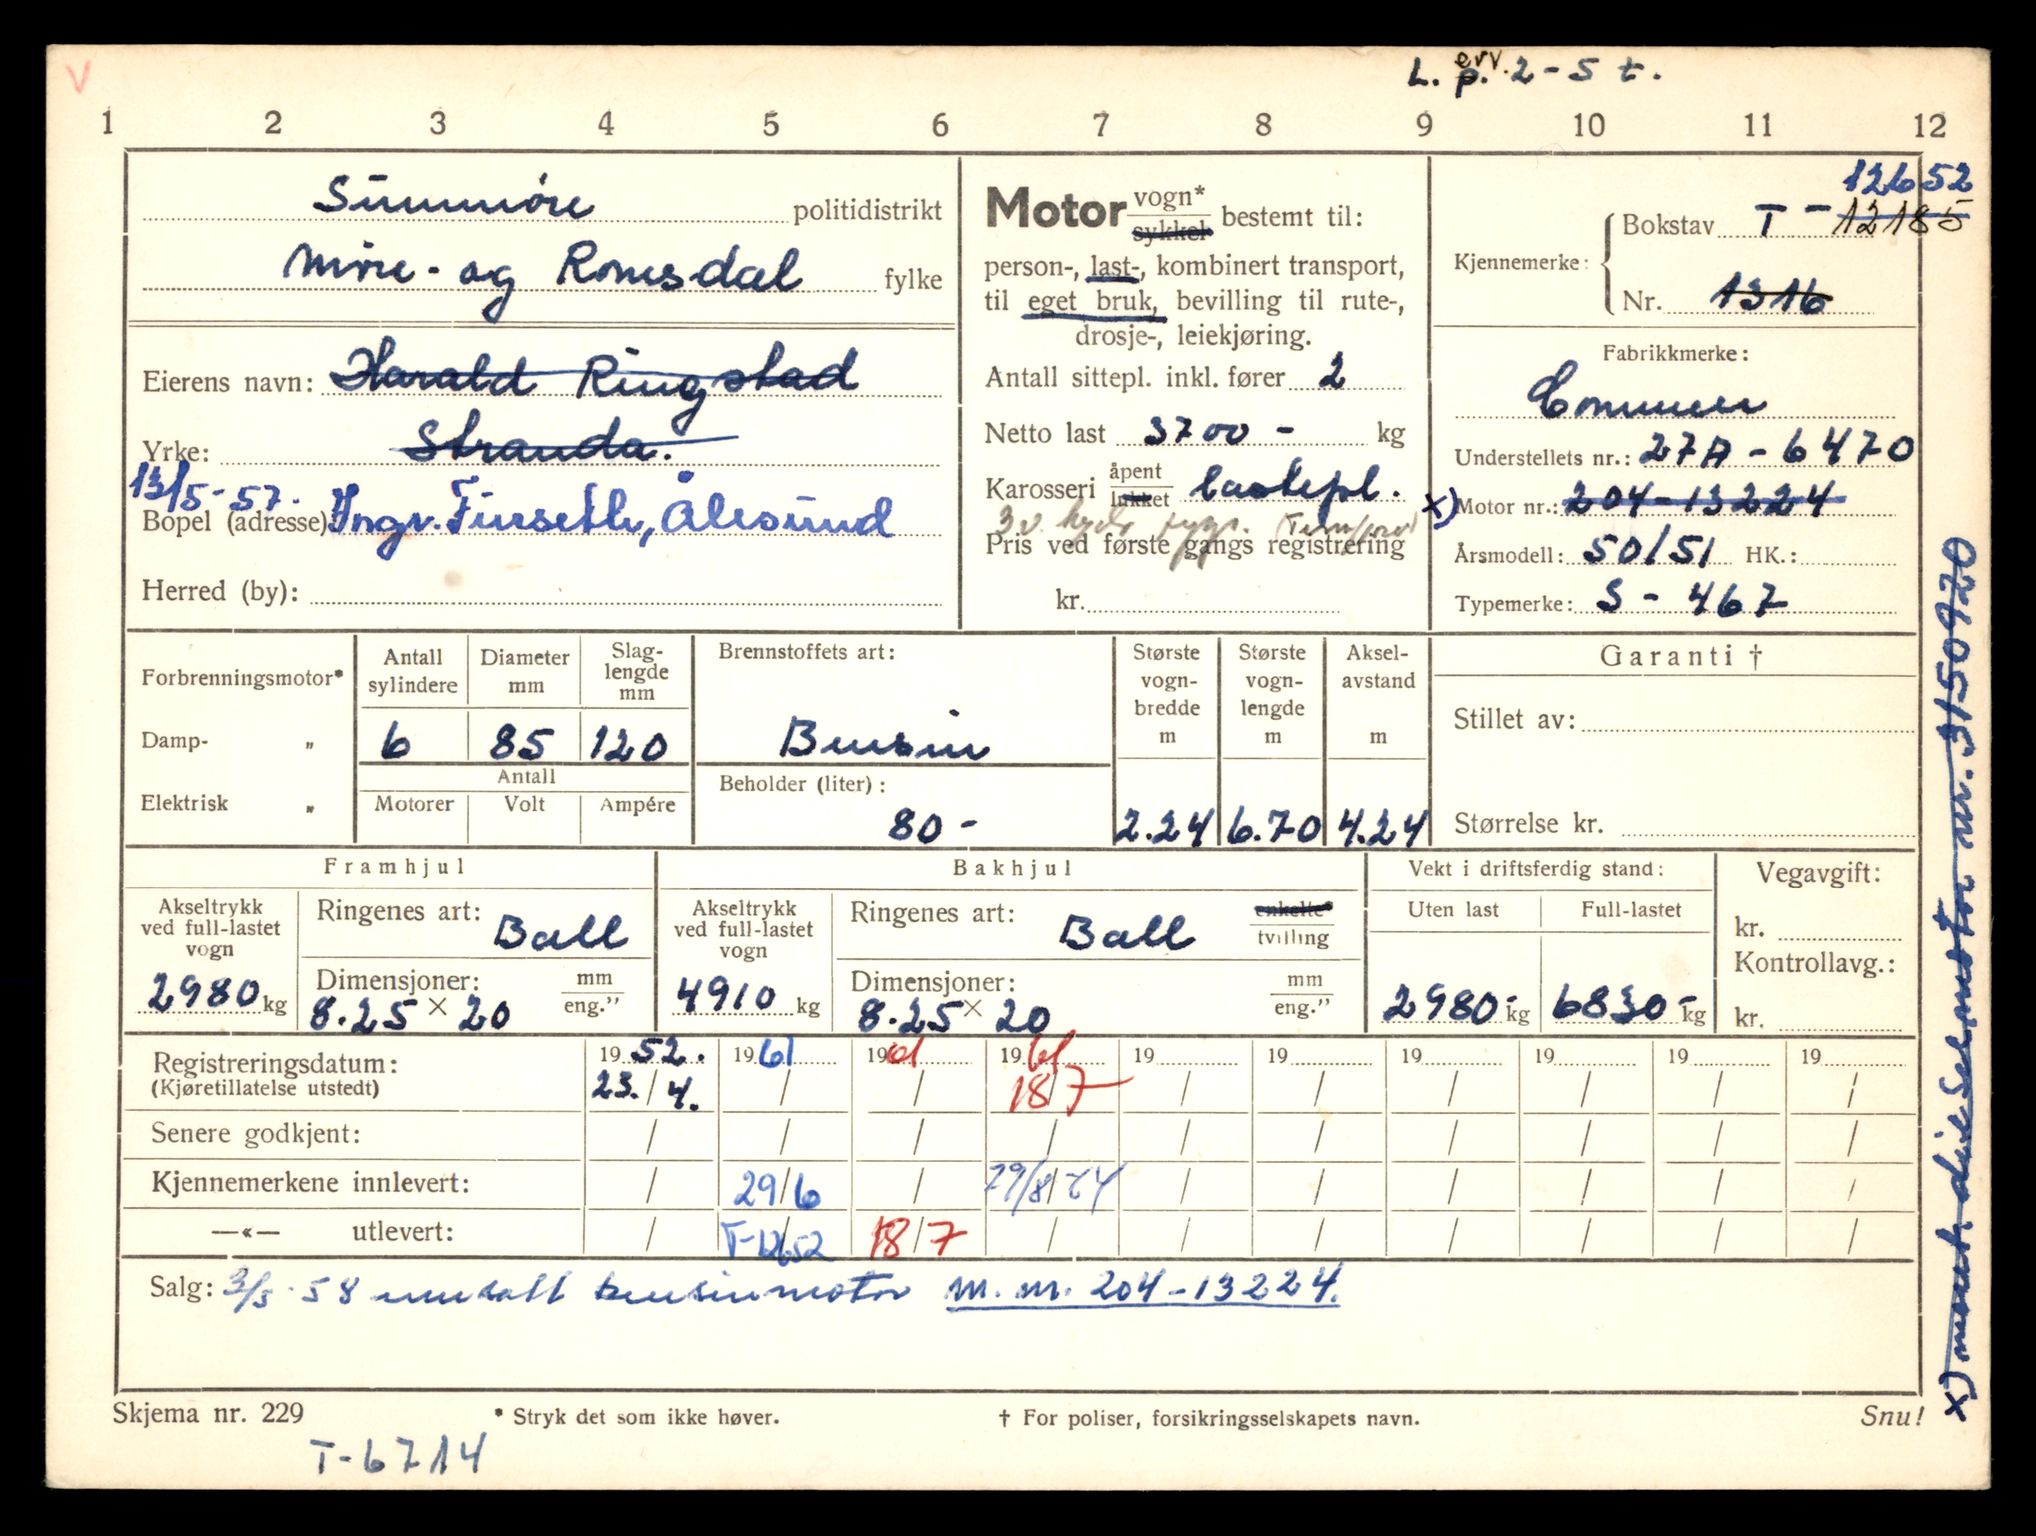 V
L. p. erv. 2 - 5 t.
1 2 3 4 5 6 7 8 9 10 11 12
Sunnmöre politidistrikt
Möre - og Romsdal fylke
Eierens navn: Harald Ringstad
Yrke: Stranda.
13/5-57.
Bopel (adresse) Yngv. Finseth, Ålesund
Herred (by):
Motor vogn* sykkel bestemt til:
person-, last-, kombinert transport,
til eget bruk, bevilling til rute-,
drosje-, leiekjøring.
Antall sittepl. inkl. fører 2
Netto last 3700 - kg
Karosseri åpent lukket lastepl.
3 v. hydr.
Pris ved første gangs registrering
kr.
12652
Kjennemerke: Bokstav T - 12185
Nr. 1316
Fabrikkmerke:
Commer
Understellets nr.: 27A - 6470
x) Motor nr.: 204-13224
Årsmodell: 50/51 HK.:
Typemerke: S - 467
Forbrenningsmotor*
Damp- "
Elektrisk "
Antall sylindere
Diameter mm
Slag-lengde mm
6 85 120
Antall
Motorer Volt Ampére
Brennstoffets art:
Bensin
Beholder (liter):
80 -
Største vogn-bredde m
Største vogn-lengde m
Aksel-avstand m
2.24 6.70 4.24
Garanti †
Stillet av:
Størrelse kr.
Framhjul
Akseltrykk ved full-lastet vogn
2980 kg
Ringenes art: Ball
Dimensjoner: mm eng."
8.25 × 20
Bakhjul
Akseltrykk ved full-lastet vogn
4910 kg
Ringenes art: Ball enkelte* tvilling
Dimensjoner: mm eng."
8.25 × 20
Vekt i driftsferdig stand:
Uten last Full-lastet
2980- kg 6830- kg
Vegavgift:
kr.
Kontrollavg.:
kr.
Registreringsdatum: 19 52. 19 61 19 61 19 61 19 19 19 19 19 19
(Kjøretillatelse utstedt) 23. / 4. / / 18/7 / / / / / /
Senere godkjent: / / / / / / / / / /
Kjennemerkene innlevert: / 29/6 / 29/8/64 / / / / / /
—«— utlevert: / T-12652 18/7 / / / / / / /
Salg: 3/5-58 innsatt bensinmotor m. nr. 204-13224.
Skjema nr. 229
* Stryk det som ikke høver.
† For poliser, forsikringsselskapets navn.
Snu!
T-6714
x) mont. dieselmotor nr. 3150920